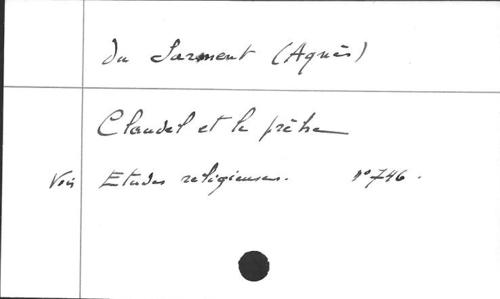 Du Sarment (Agnès)
Claudel et le prêtre
Voir Etudes religieuses. n° 746.